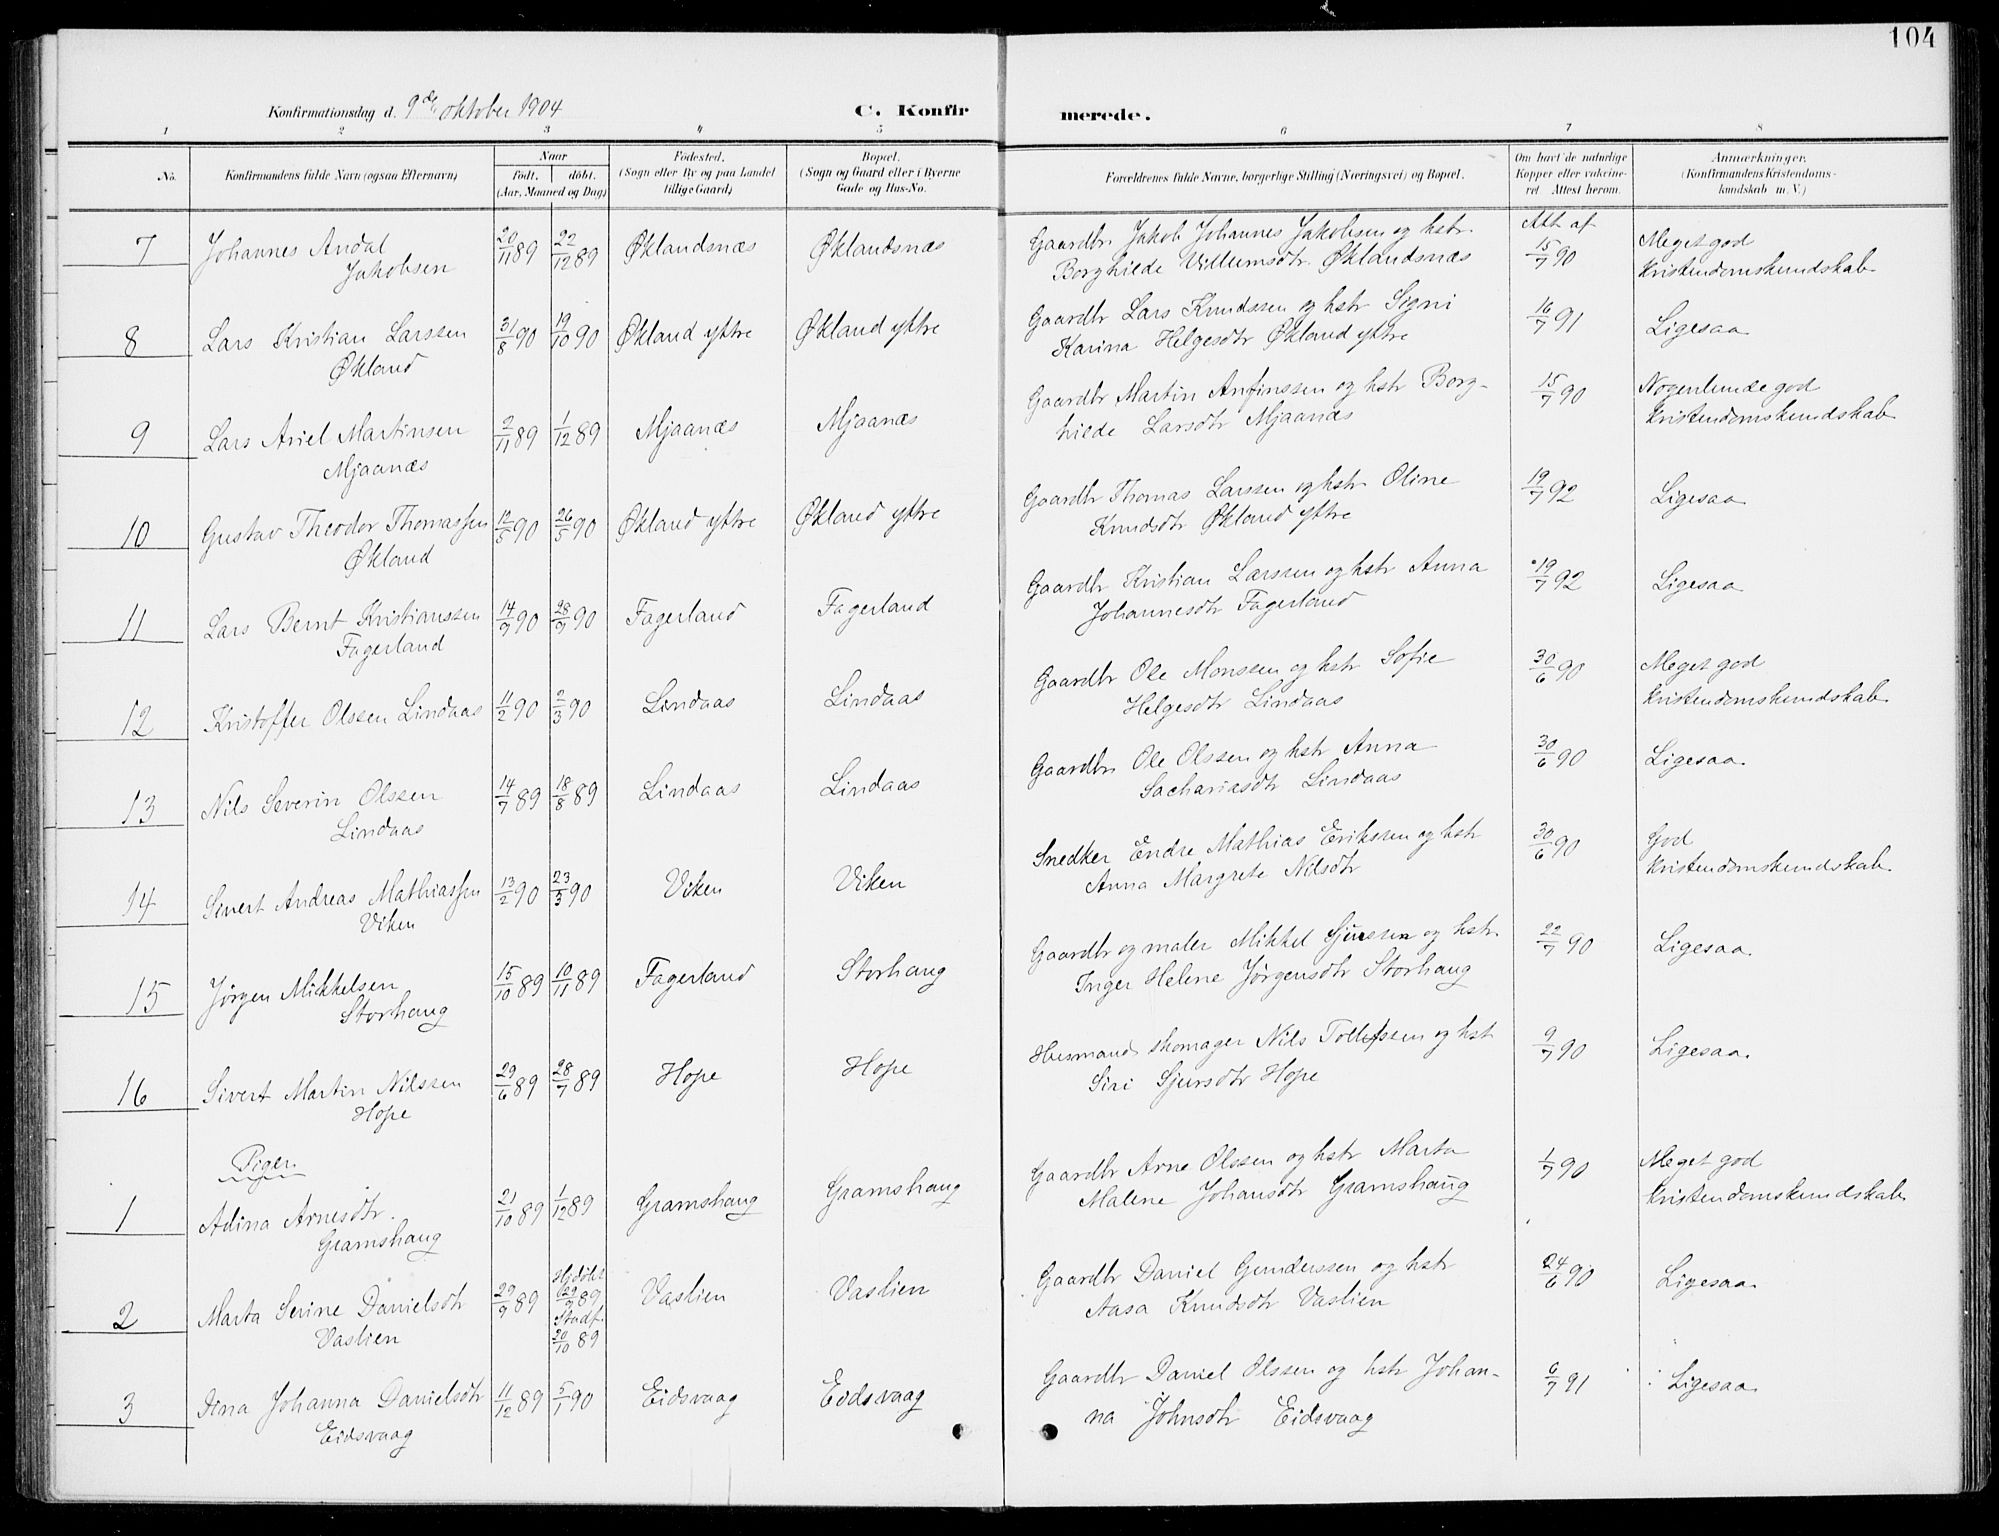 104
Konfirmationsdag d. 9de oktober 1904
C. Konfirmerede.
1 2 3 4 5 6 7 8
No. Konfirmandens fulde Navn (ogsaa Efternavn) Naar født. døbt. (Aar, Maaned og Dag) Fødested. (Sogn eller By og paa Landet tillige Gaard) Bopæl. (Sogn og Gaard eller i Byerne Gade og Hus-No. Forældrenes fulde Navne, borgerlige Stilling (Næringsvei) og Bopæl. Om havt de naturlige Kopper eller vakcineret. Attest herom. Anmærkninger. (Konfirmandens Kristendomskundskab m. V.)
7 Johannes Andal 20/11 89 22/12 89 Øklandsnæs Øklandsnæs Gaardbr. Jakob Johannes Jakobsen og hstr. Att af 15/7 90 Meget god
Jakobsen Borghilde Villumsdtr. Øklandsnæs Kristendomskundskab
8 Lars Kristian Larssen 31/8 90 19/10 90 Økland yttre Økland yttre Gaardbr Lars Knudssen og hstr Signi 16/7 91 Ligesaa
Økland Karina Helgesdtr Økland yttre
9 Lars Ariel Martinsen 2/11 89 1/12 89 Mjaanæs Mjaanæs Gaardbr Martin Anfinssen og hstr Borg- 15/7 90 Nogenlunde god
Mjaanæs hilde Larsdtr Mjaanæs Kristendomskundskab
10 Gustav Theodor Thomassen 12/5 90 26/5 90 Økland yttre Økland yttre Gaardbr Thomas Larssen og hstr Oline 19/7 92 Ligesaa
Økland Knudsdtr Økland yttre
11 Lars Bernt Kristianssen 14/7 90 28/7 90 Fagerland Fagerland Gaardbr Kristian Larssen og hstr Anna 19/7 92 Ligesaa
Fagerland Johannesdtr Fagerland
12 Kristoffer Olssen Lindaas 11/2 90 2/3 90 Lindaas Lindaas Gaardbr Ole Monssen og hstr Sofie 30/6 90 Meget god
Helgesdtr Lindaas Kristendomskundskab
13 Nils Severin Olssen 14/7 89 18/8 89 Lindaas Lindaas Gaardbr. Ole Olssen og hstr Anna 30/6 90 Ligesaa.
Lindaas Sachariasdtr Lindaas
14 Sivert Andreas Mathiassen 13/2 90 23/3 90 Viken Viken Snedker Endre Mathias Erikssen og hstr 30/6 90 God
Viken Anna Margrete Nilsdtr Kristendomskundskab.
15 Jørgen Mikkelsen 15/10 89 10/11 89 Fagerland Storhaug Gaardbr og maler Mikkel Sjurssen og hstr. 22/7 90 Ligesaa.
Storhaug Inger Helene Jørgensdtr Storhaug
16 Sivert Martin Nilssen 29/6 89 28/7 89 Hope Hope Husmand skomager Nils Tollefssen og hst 9/7 90 Ligesaa.
Hope Siri Sjursdtr Hope
Piger.
1 Adina Arnesdtr. 21/10 89 1/12 89 Gramshaug Gramshaug Gaardbr Arne Olssen og hstr Marta 1/7 90 Meget god
Gramshaug Malene Johansdtr Gramshaug Kristendomskundskab
2 Marta Serine Danielsdtr 29/9 89 Hjdøbt 29/9 89 Stadf. 20/10 89 Vaslien Vaslien Gaardbr Daniel Gunderssen og hstr 24/6 90 Ligesaa.
Vaslien Aasa Knudsdtr Vaslien
3 Dina Johanna Danielsdtr 11/12 89 5/1 90 Eidsvaag Eidsvaag Gaardbr Daniel Olssen og hstr Johan- 6/7 91 Ligesaa.
Eidsvaag na Johnsdtr Eidsvaag